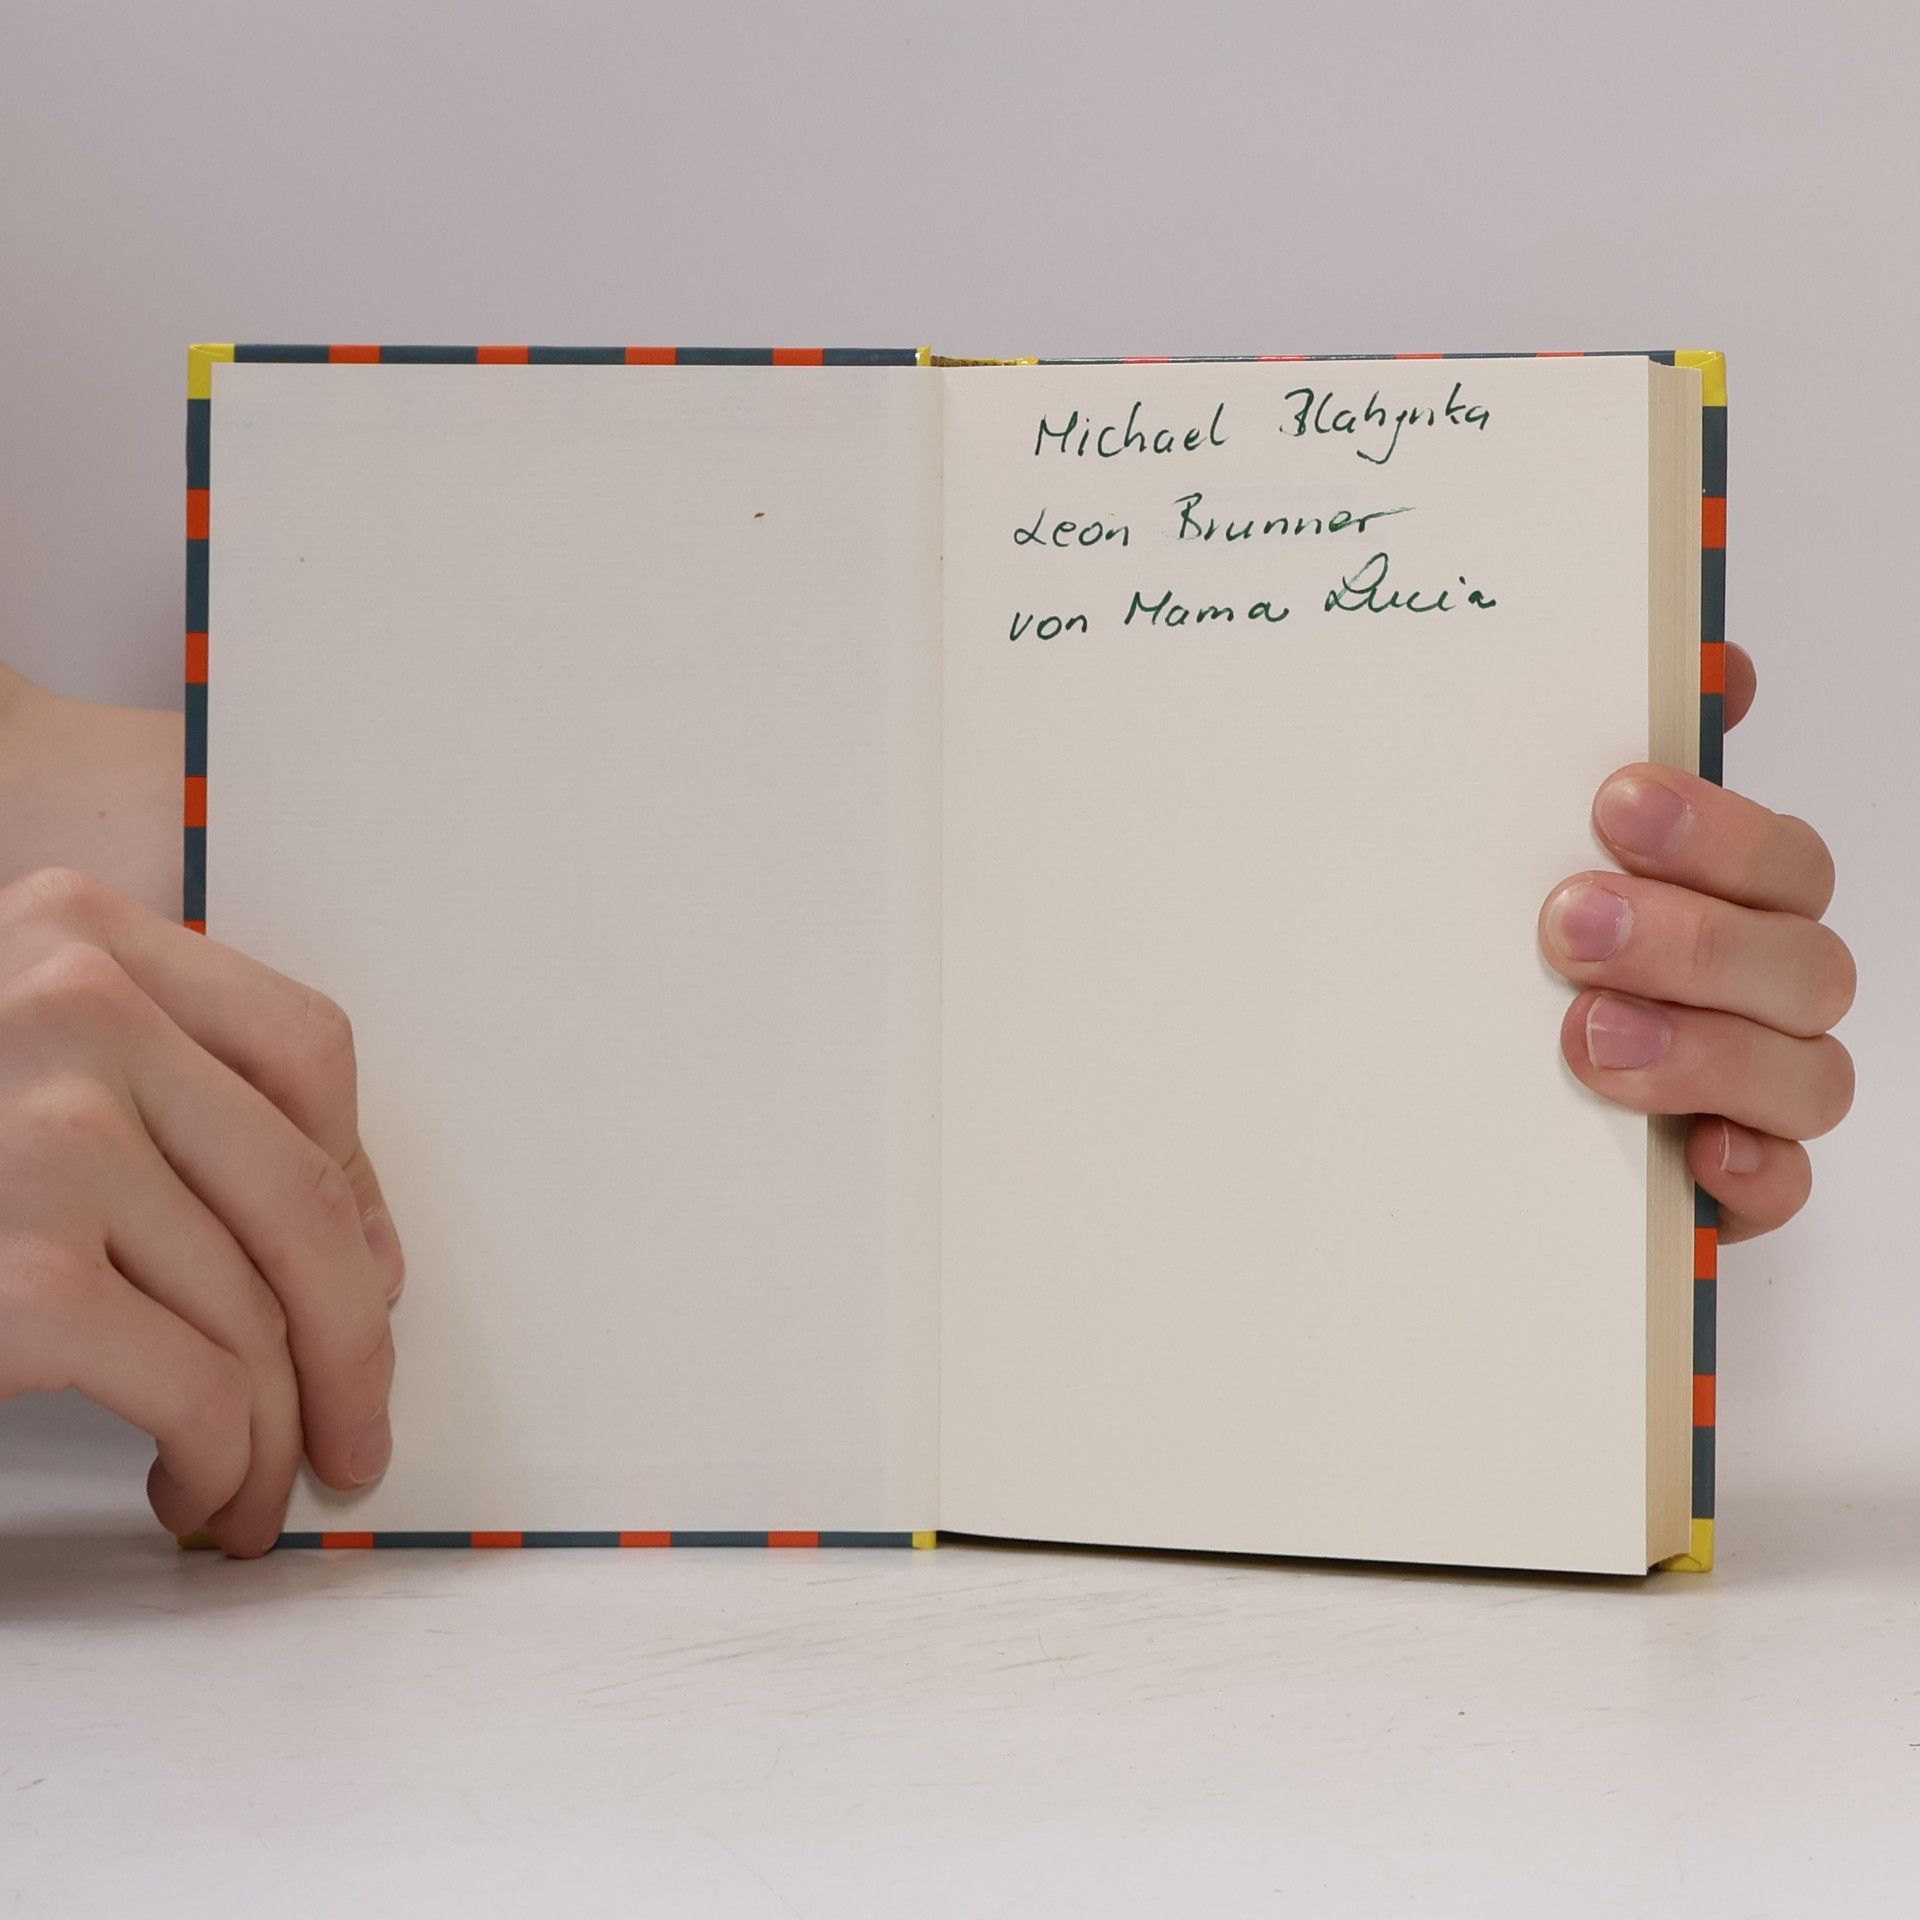 Michael Blahynka
Leon Brunner
von Mama Lucia